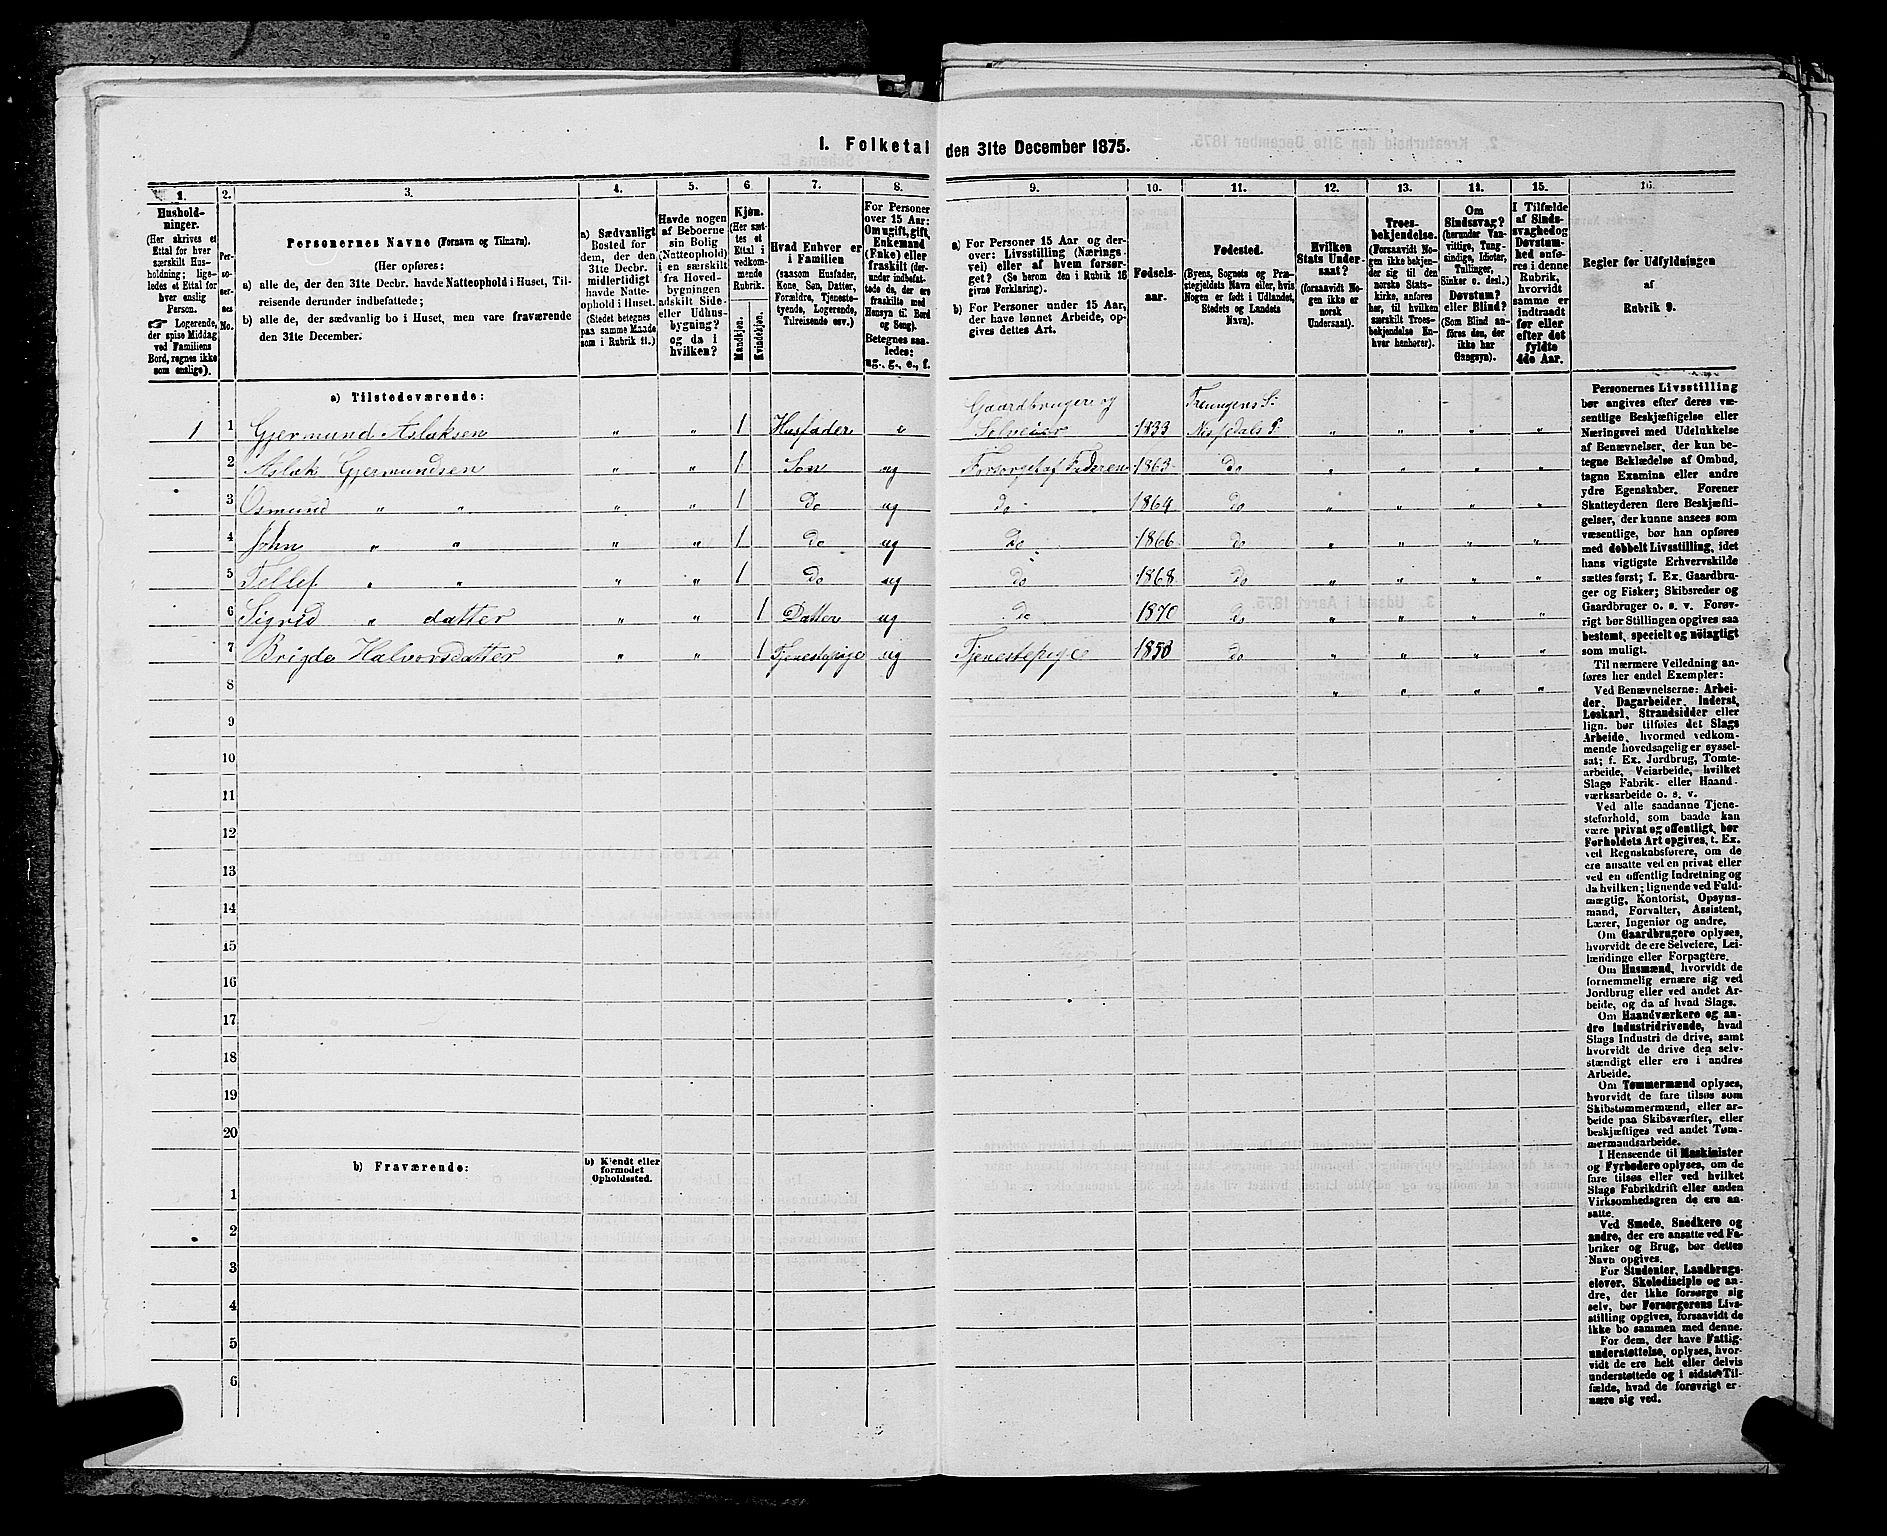 1. Folketal den 31te December 1875.
1. 2. 3. 4. 5. 6. 7. 8. 9. 10. 11. 12. 13. 14. 15. 16.
Hushold-
ninger.
(Her skrives et
Ettal for hver
særskilt Hus-
holdning; lige-
ledes et Ettal for
hver enslig
Person.
☞ Logerende,
der spise Middag
ved Familiens
Bord, regnes ikke
som enslige).
Per-
so-
ner-
nes
No.
Personernes Navne (Fornavn og Tilnavn).
(Her opføres:
a) alle de, der den 31te Decbr. havde Natteophold i Huset, Til-
reisende derunder indbefattede;
b) alle de, der sædvanlig bo i Huset, men vare fraværende
den 31te December.
a) Sædvanligt
Bosted for
dem, der den
31te Decbr.
midlertidigt
havde Natte-
ophold i Huset.
(Stedet betegnes
paa samme Maade
som i Rubrik 11.)
Havde nogen
af Beboerne
sin Bolig
(Natteophold)
i en særskilt
fra Hoved-
bygningen
adskilt Side-
eller Udhus-
bygning?
og da i
hvilken?
Kjøn.
(Her sæt-
tes et
Ettal i
vedkom-
mende
Rubrik.
Mandkjøn.
Kvindekjøn.
Hvad Enhver er
i Familien
(saasom Husfader,
Kone, Søn, Datter,
Forældre, Tjeneste-
tyende, Logerende,
Tilreisende osv.)
For Personer
over 15 Aar:
Om ugift, gift,
Enkemand
(Enke) eller
fraskilt (der-
under indbefat-
tede de, der ere
fraskilte med
Hensyn til Bord
og Seng).
Betegnes saa-
ledes:
ug., g., e., f.
a) For Personer 15 Aar og der-
over: Livsstilling (Nærings-
vei) eller af hvem forsør-
get? (Se herom den i Rubrik 16
givne Forklaring).
b) For Personer under 15 Aar,
der have lønnet Arbeide, op-
gives dettes Art.
Fødsels-
aar.
Fødested.
(Byens, Sognets og Præ-
stegjeldets Navn eller, hvis
Nogen er født i Udlandet,
Stedets og Landets
Navn).
Hvilken
Stats Under-
saat?
(forsaavidt No-
gen ikke er
norsk
Undersaat).
Troes-
bekjendelse.
(Forsaavidt No-
gen ikke bekjen-
der sig til den
norske Stats-
kirke, anføres
her, til hvilken
særskilt Troes-
bekjendelse En-
hver henhører).
Om
Sindssvag?
(herunder Van-
vittige, Tung-
sindige, Idioter,
Tullinger,
Sinker o. desl.)
Døvstum?
eller Blind?
(Som Blind an-
føres den, der
ikke har
Gangsyn).
I Tilfælde
af Sinds-
svaghed og
Døvstum-
hed anfø-
res i denne
Rubrik,
hvorvidt
samme er
indtraadt
før eller
efter det
fyldte
4de Aar.
Regler for Udfyldningen
af
Rubrik 9.
a) Tilstedeværende:
Gaardbruger og Treungens S:
1 1 Gjermund Aslaksen " " 1 Husfader " Selveier 1833 Nissedals P: " " " "
2 Aslak Gjermundsen " " 1 Søn ug Forsørget af Faderen 1863 do " " " "
3 Osmund " " " " 1 do ug do 1864 do " " " "
4 John " " " " 1 do ug do 1866 do " " " "
5 Tellef " " " " 1 do ug do 1868 do " " " "
6 Sigrid " datter " " 1 Datter ug do 1870 do " " " "
7 Brigde Halvorsdatter " " 1 Tjenestepige ug Tjenestepige 1850 do " " " "
8 " " " "
9
10
11
12
13
14
15
16
17
18
19
20
b) Fraværende:
b) Kjendt eller
formodet
Opholdssted.
1
2
3
4
5
6
Personernes Livsstilling
bør angives efter deres væ-
sentlige Beskjæftigelse eller
Næringsvei med Udelukkelse
af Benævnelser, der kun be-
tegne Beklædelse af Ombud,
tagne Examina eller andre
ydre Egenskaber. Forener
Skatteyderen flere Beskjæfti-
gelser, der kunne ansees som
væsentlige, bør han opføres
med dobbelt Livsstilling, idet
hans vigtigste Erhvervskilde
sættes først; f. Ex. Gaardbru-
ger og Fisker; Skibsreder og
Gaardbruger o. s. v. Forøv-
rigt bør Stillingen opgives saa
bestemt, specielt og nøiagtigt
som muligt.
Til nærmere Veiledning an-
føres her endel Exempler:
Ved Benævnelserne: Arbei-
der, Dagarbeider, Inderst,
Løskarl, Strandsidder eller
lign. bør tilføies det Slags
Arbeide, hvormed vedkom-
mende hovedsagelig er syssel-
sat; f. Ex. Jordbrug, Tomte-
arbeide, Veiarbeide, hvilket
Slags Fabrik- eller Haand-
værksarbeide o. s. v.
Ved alle saadanne Tjene-
steforhold, som baade kan
være privat og offentligt, bør
Forholdets Art opgives, t. Ex.
ved Regnskabsførere, om de
ere ansatte ved en privat eller
ved en offentlig Indretning og
da hvilken; lignende ved Fuld-
mægtig, Kontorist, Opsyns-
mand, Forvalter, Assistent,
Lærer, Ingeniør og andre.
Om Gaardbrugere oplyses,
hvorvidt de ere Selveiere, Lei-
lændinge eller Forpagtere.
Om Husmænd, hvorvidt de
fornemmelig ernære sig ved
Jordbrug eller ved andet Ar-
beide, og da af hvad Slags.
Om Haandværkere og an-
dre Industridrivende, hvad
Slags Industri de drive, samt
hvorvidt de drive den selv-
stændigt eller ere i andres
Arbeide.
Om Tømmermænd oplyses,
hvorvidt de fare tilsøs som
Skibstømmermænd, eller ar-
beide paa Skibsværfter, eller
beskjæftiges ved andet Tøm-
mermandsarbeide.
I Henseende til Maskinister
og Fyrbødere oplyses, om de
fare tilsøs eller ved hvilket
Slags Fabrikdrift eller anden
Virksomhedsgren de ere an-
satte.
Ved Smede, Snedkere og
andre, der ere ansatte ved Fa-
briker og Brug, bør dettes
Navn opgives.
For Studenter, Landbrugs-
elever, Skoledisciple og an-
dre, der ikke forsørge sig
selv, bør Forsørgerens Livs-
stilling opgives, forsaavidt de
ikke bo sammen med denne.
For dem, der have Fattig-
understøttelse, oplyses, hvor-
vidt de ere helt eller delvis
understøttede og i sidste Til-
fælde, hvad de forøvrigt er-
nære sig ved.